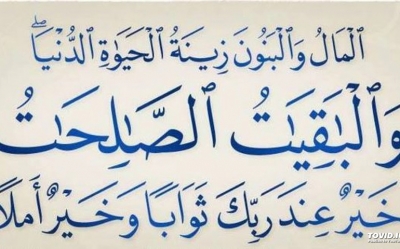 الْمَالُ وَالْبَنُونَ زِينَةُ الْحَيَوٰةِ الدُّنْيَا ۖ
وَالْبَٰقِيَٰتُ الصَّٰلِحَٰتُ
خَيْرٌ عِندَ رَبِّكَ ثَوَابًا وَخَيْرٌ أَمَلًا